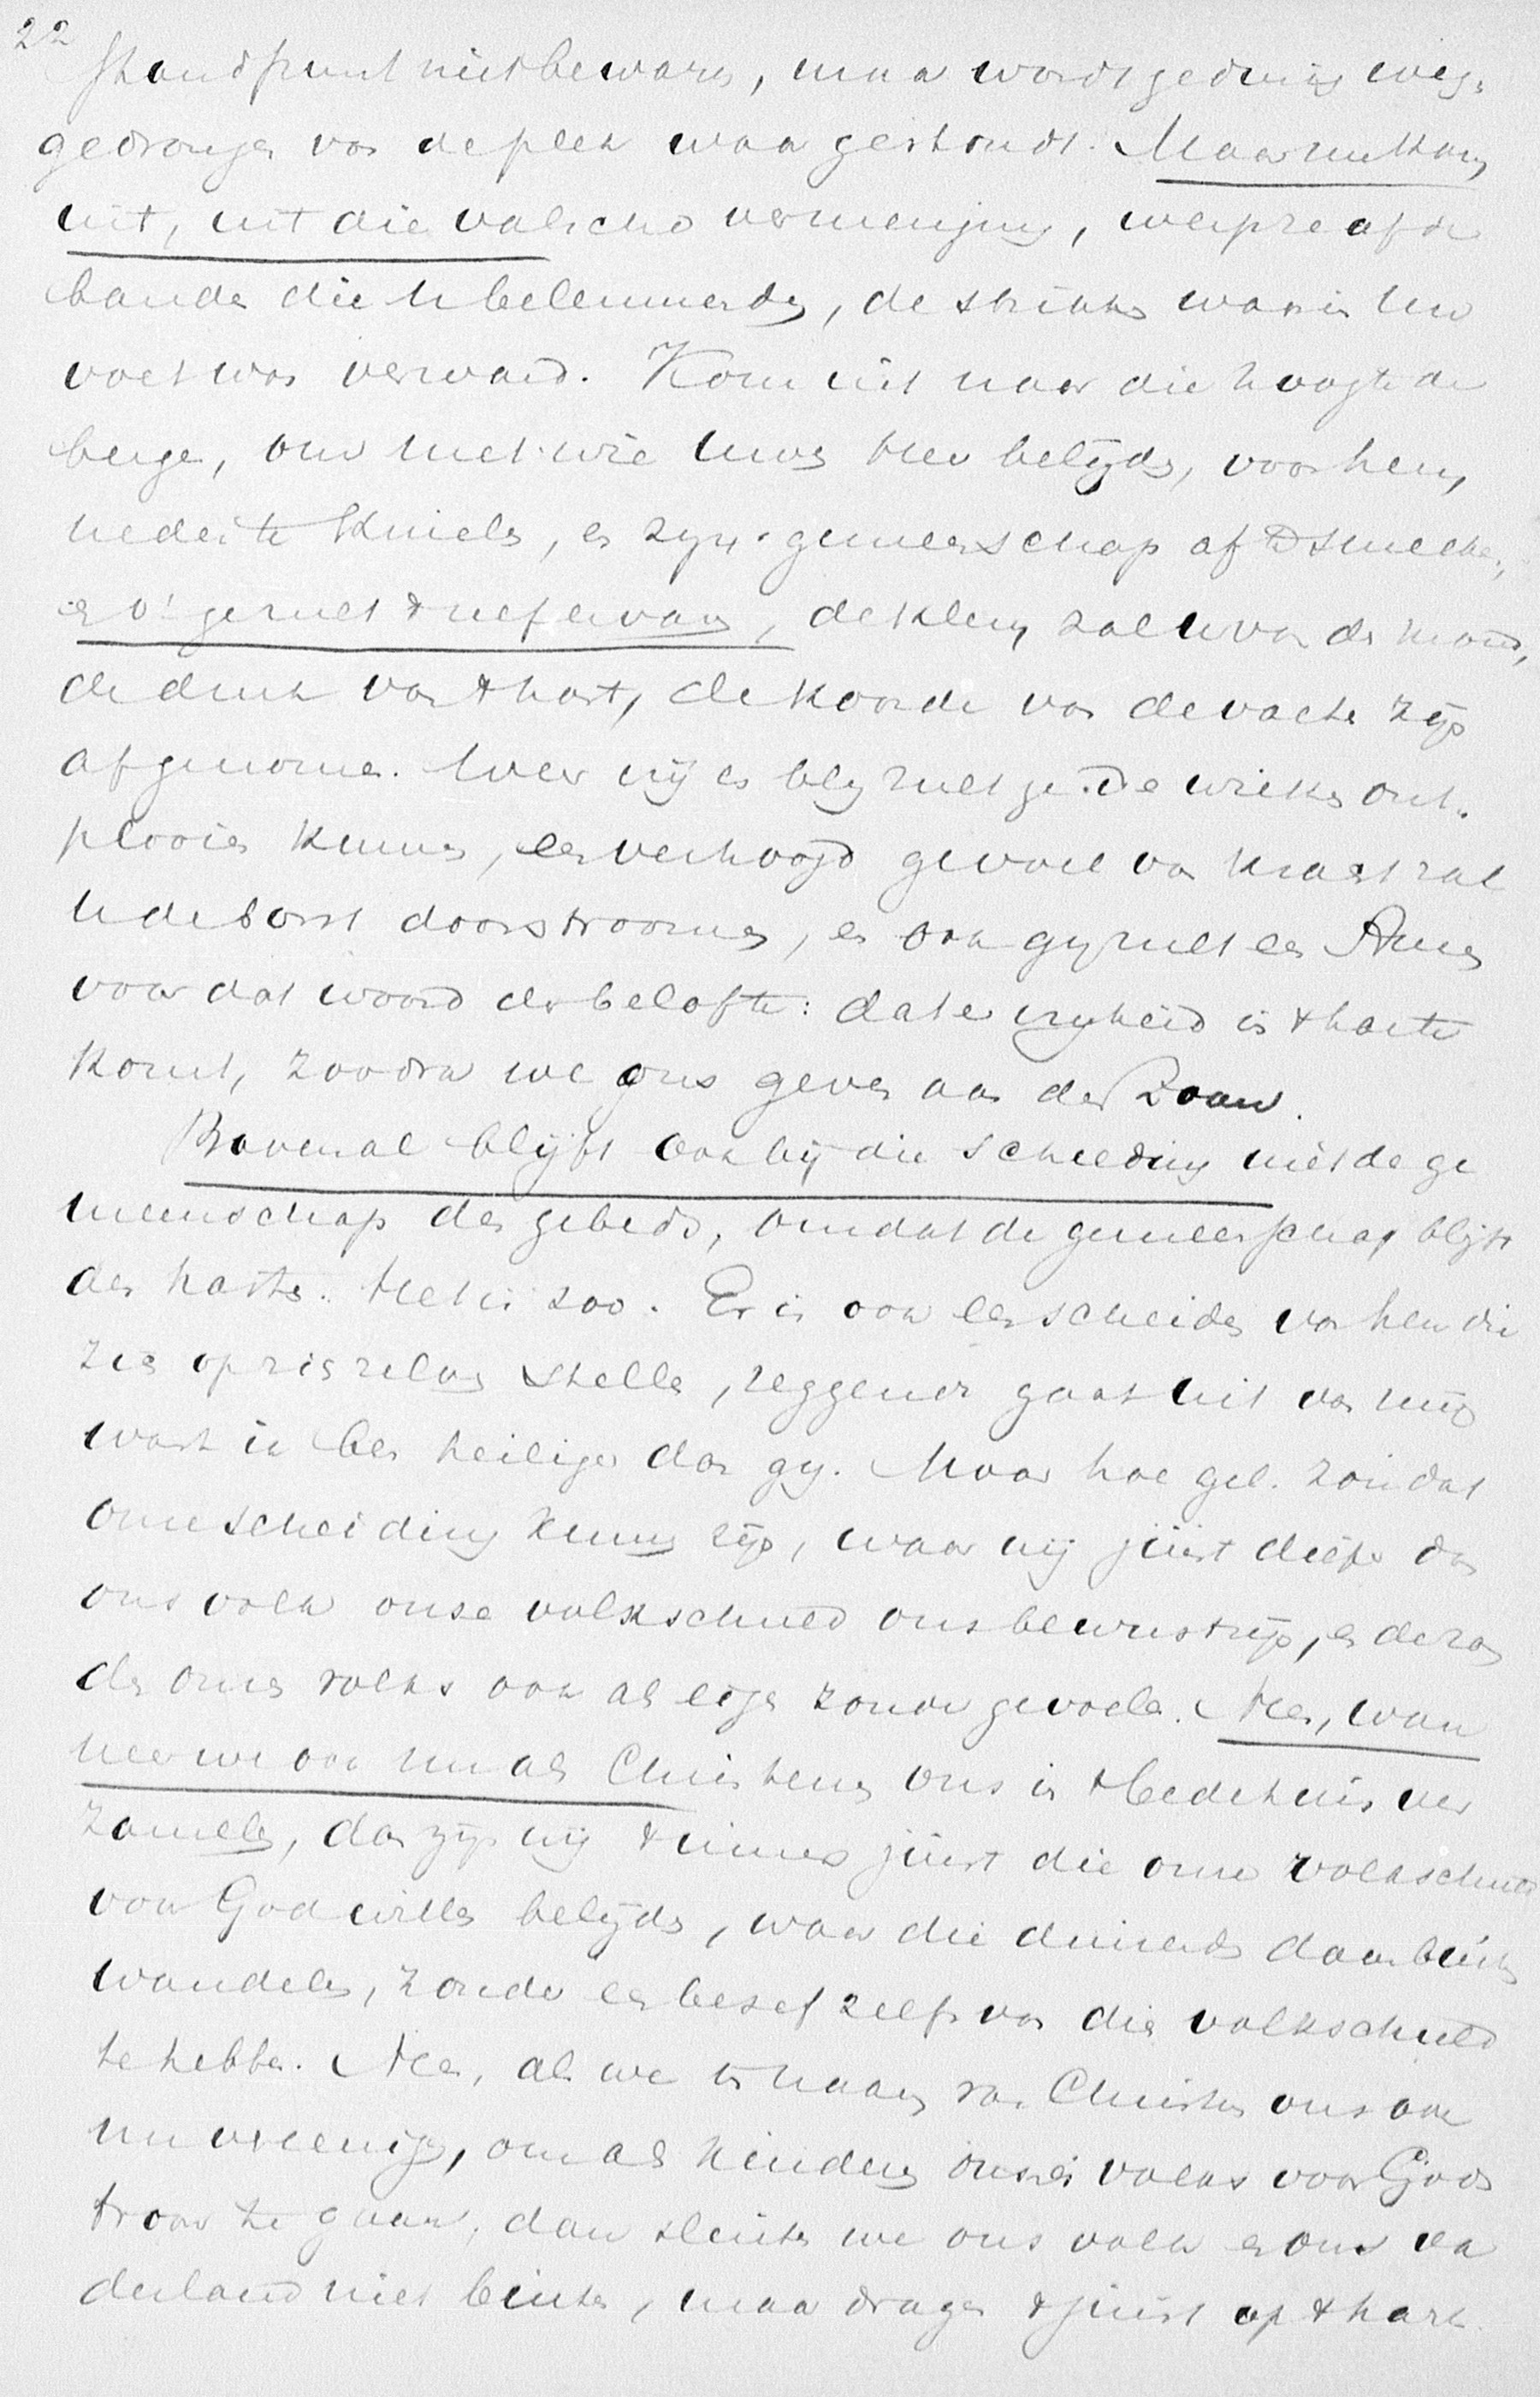 22
standpunt niet bewaren, maar wordt gedurig weg-
gedrongen van de plek waar ge stondt. Maar nu kom
uit, uit die valsche vermenging, werp ze af de
banden die U belemmerden, de strikken waarin Uw
voet was verward. Kom uit naar die hoogte der
bergen, om met wie Uwen Heer belijden, voor hem
neder te knielen, en zijn gemeenschap af te smeeken,
en o! ge zult 't ervaren, de klem zal U van den mond,
de druk van 't hart, de koorde van de vacht zijn
afgenomen. Weer vrij en blij zult ge de wieken ont-
plooien kunnen, een verhoogd gevoel van kracht zal
U de borst doorstroomen, en ook gij zult een Amen
voor dat woord der belofte: dat er vrijheid in 't harte
komt, zoodra we ons geven aan den Zoon.
Bovenal blijft ook bij die scheeding niet de ge
meenschap des gebeds, omdat de gemeenschap blijft
der harten. Het is zoo. Er is ook een scheiden van hen die
zich op zich zelven stellen, zeggende gaat uit van mij
want ik ben heiliger dan gij. Maar hoe gel. zou dat
onze scheiding kunnen zijn, waar wij juist dieper dan
ons volk onze volksschuld ons bewust zijn, en de zon
de onzes volks ook als eigen zonde gevoelen. Neen, wan
neer we ook nu als Christenen ons in 't bedehuis ver
zamelen, dan zijn wij 't immers juist die onze volksschuld
voor God willen belijden, waar die duizenden daarbuiten
wandelen, zonder een besef zelfs van die volksschuld
te hebben. Neen, als we in naam van Christus ons ook
nu vereenigen, om als kinderen onzes volks voor Gods
troon te gaan, dan sluiten we ons volk en ons va
derland niet buiten, maar dragen 't juist op 't hart.